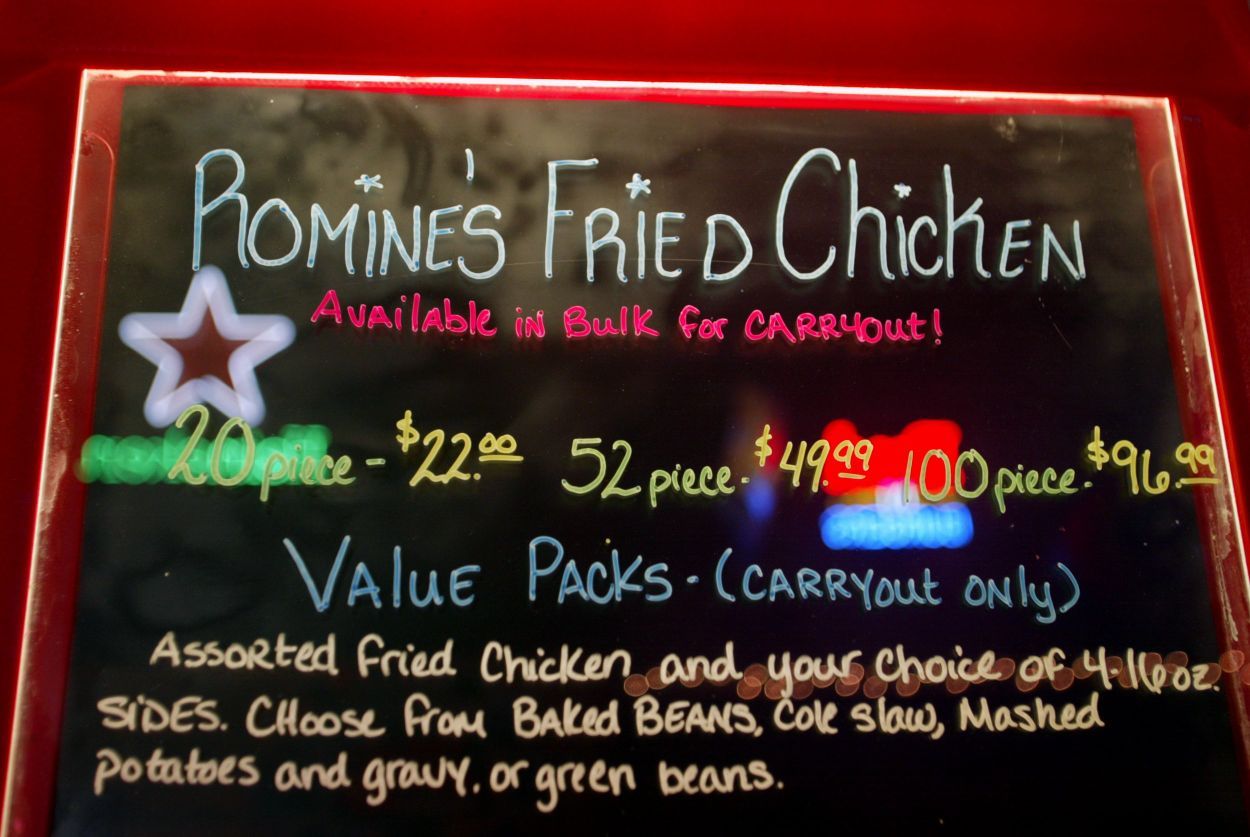 Romine's Fried Chicken
Available in Bulk for CARRYout!
20 piece - $22.00 52 piece - $49.99 100 piece - $96.99
Value Packs - (CARRYout only)
Assorted Fried Chicken and your choice of 4-16oz.
SIDES. Choose from Baked BEANS, Cole slaw, Mashed
potatoes and gravy, or green beans.